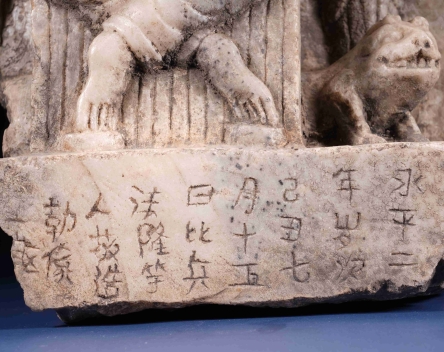 永平二
年岁次
己丑七
月十五
日比丘
法隆等
人敬造
勒像